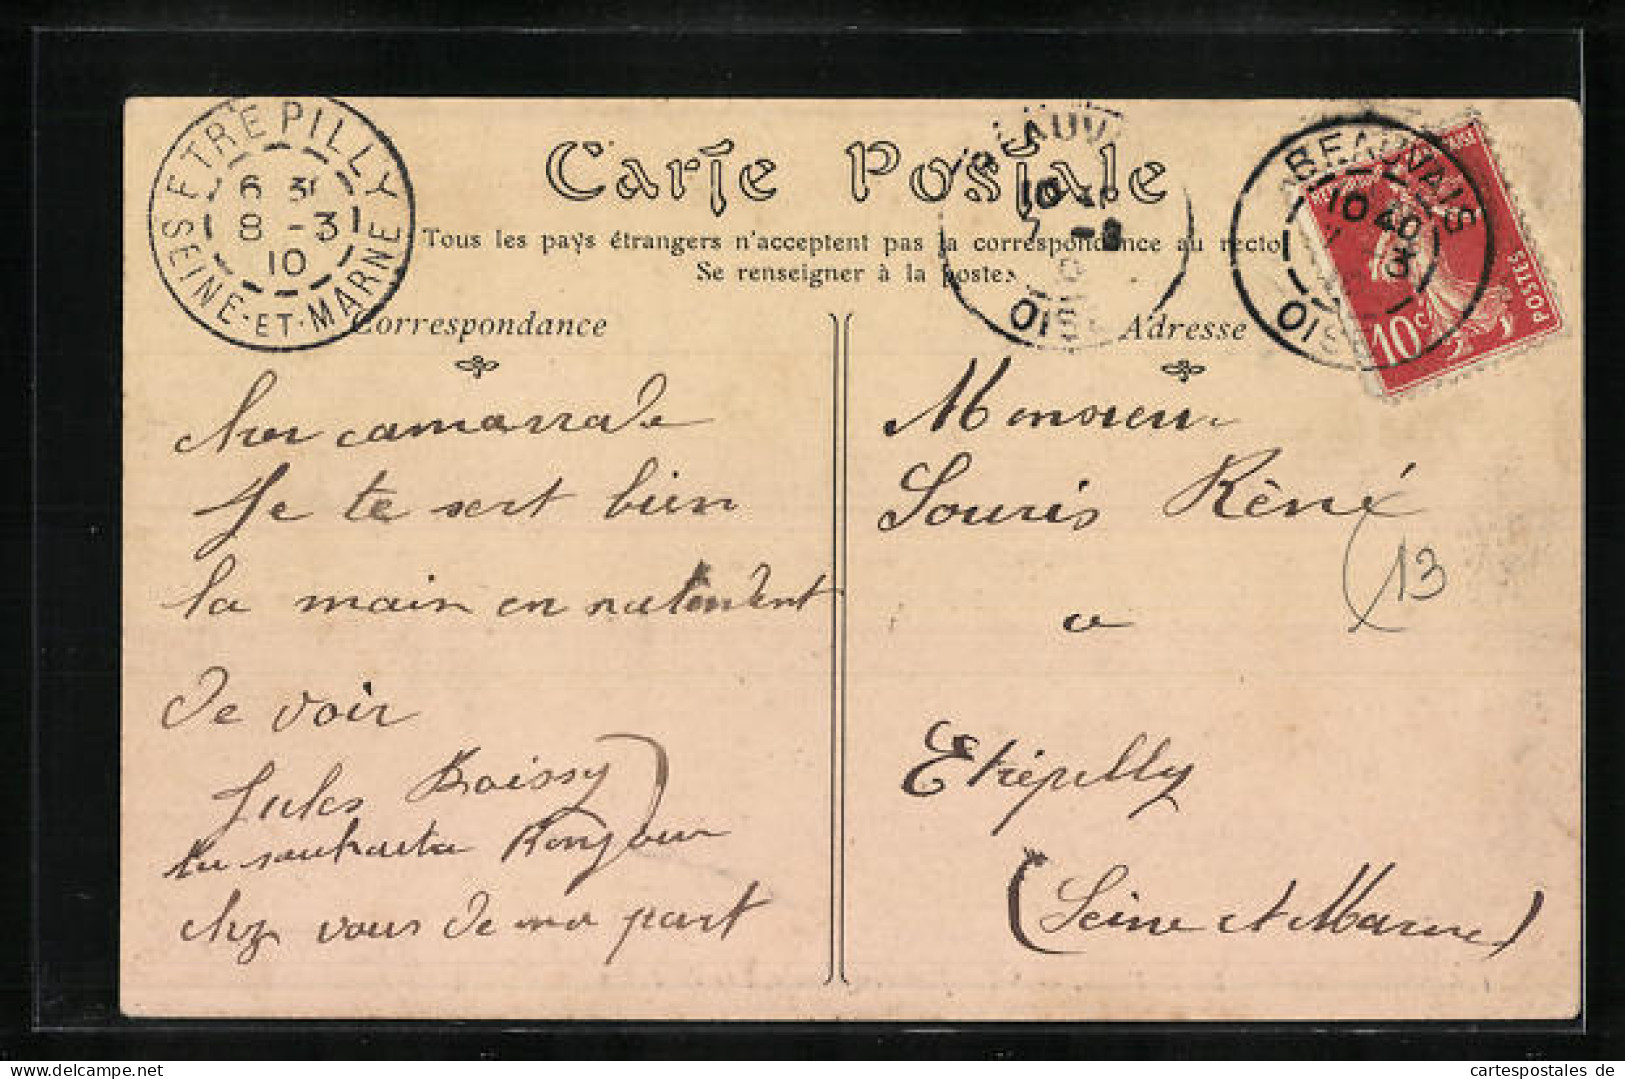 ETREPILLY
6 3E
8 -3
10
SEINE-ET-MARNE
Carte Postale
Tous les pays étrangers n'acceptent pas la correspondance au recto
Se renseigner à la poste.
BEAUV
OIS
BEAUVAIS
10 40
OISE
POSTES
10c
Correspondance
Adresse
cher camarrade
Je te sert bien
la main en
de voir
Jules Boissy
tu souhaitra bonjour
chez vous de ma part
Monsieur
Souris Réné
a
Etrépilly
(Seine et Marne)
13
cartespostales de